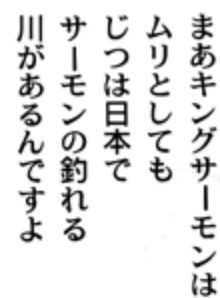 まあキングサーモンは
ムリとしても
じつは日本で
サーモンの釣れる
川があるんですよ